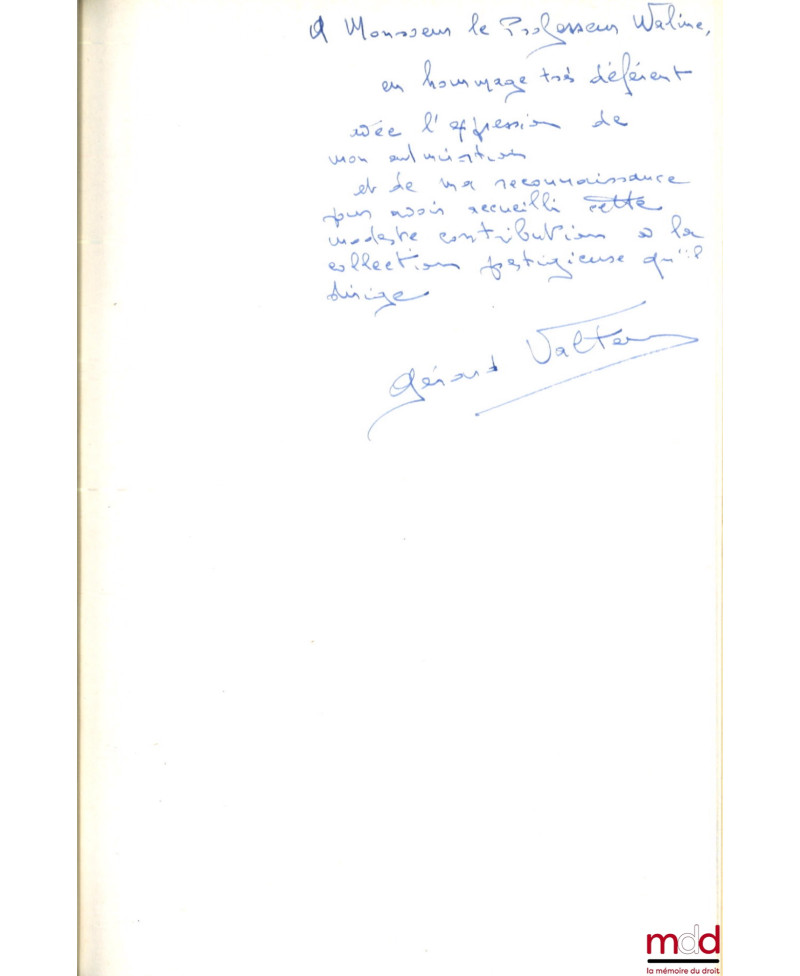 A Monsieur le Professeur Waline,
en hommage très déférent
avec l'expression de
mon admiration
et de ma reconnaissance
pour avoir accueilli cette
modeste contribution à la
collection prestigieuse qu'il
dirige
Gérard Valter
mdd
la mémoire du droit